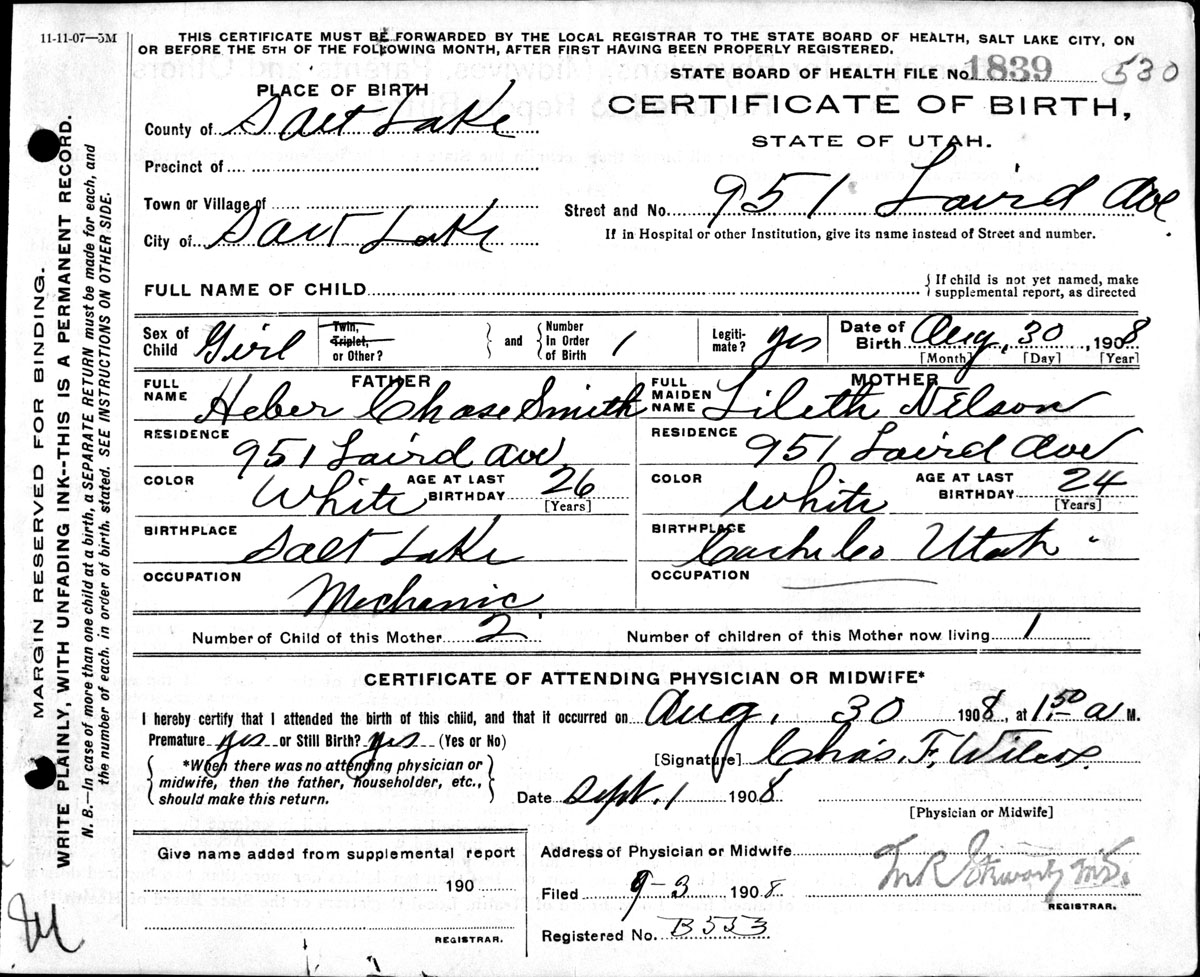 11-11-07—5M
THIS CERTIFICATE MUST BE FORWARDED BY THE LOCAL REGISTRAR TO THE STATE BOARD OF HEALTH, SALT LAKE CITY, ON
OR BEFORE THE 5TH OF THE FOLLOWING MONTH, AFTER FIRST HAVING BEEN PROPERLY REGISTERED.
STATE BOARD OF HEALTH FILE No. 1839 530
PLACE OF BIRTH
CERTIFICATE OF BIRTH,
STATE OF UTAH.
County of Salt Lake
Precinct of
Town or Village of
Street and No. 951 Laird Ave.
City of Salt Lake
If in Hospital or other Institution, give its name instead of Street and number.
FULL NAME OF CHILD
{If child is not yet named, make
supplemental report, as directed
Sex of Child Girl
Twin, Triplet, or Other?
and
Number In Order of Birth 1
Legiti-mate? yes
Date of Birth Aug, 30, 1908
[Month] [Day] [Year]
FATHER
FULL NAME Heber Chase Smith
RESIDENCE 951 Laird Ave
COLOR White
AGE AT LAST BIRTHDAY 26
[Years]
BIRTHPLACE Salt Lake
OCCUPATION Mechanic
MOTHER
FULL MAIDEN NAME Lileth Nelson
RESIDENCE 951 Laird Ave
COLOR White
AGE AT LAST BIRTHDAY 24
[Years]
BIRTHPLACE Cache Co Utah
OCCUPATION
Number of Child of this Mother 2
Number of children of this Mother now living 1
CERTIFICATE OF ATTENDING PHYSICIAN OR MIDWIFE*
I hereby certify that I attended the birth of this child, and that it occurred on Aug, 30 1908, at 1.50 a M.
Premature yes or Still Birth? yes (Yes or No)
[Signature] Chas. F. Wilcox.
*When there was no attending physician or
midwife, then the father, householder, etc.,
should make this return.
Date Sept. 1 1908.
[Physician or Midwife]
Give name added from supplemental report
190
REGISTRAR.
Address of Physician or Midwife
Filed 9-3 1908.
M.D.
REGISTRAR.
Registered No. B533
MARGIN RESERVED FOR BINDING.
WRITE PLAINLY, WITH UNFADING INK--THIS IS A PERMANENT RECORD.
N. B.—In case of more than one child at a birth, a SEPARATE RETURN must be made for each, and
the number of each. in order of birth. stated. SEE INSTRUCTIONS ON OTHER SIDE.